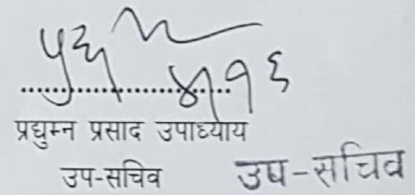 प्रद्युम्न प्रसाद उपाध्याय
उप-सचिव उप-सचिव